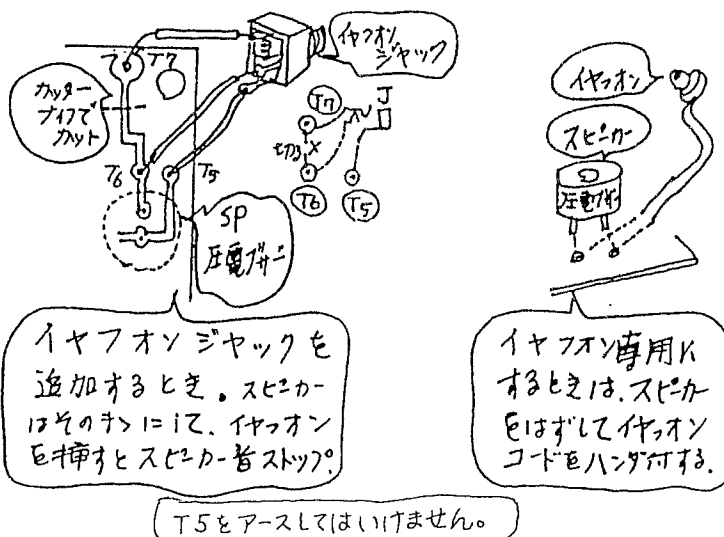 T7
イヤフオン
ジャック
カッター
ナイフで
カット
T7
J
切る
T6
T5
T6
T5
SP
圧電ブザー
イヤフオン
スピーカー
圧電ブザー
イヤフオンジャックを
追加するとき。スピーカー
はそのままにして、イヤフオン
を挿すとスピーカー音ストップ.
イヤフオン専用に
するときは、スピーカー
をはずしてイヤフオン
コードをハンダ付する.
T5をアースしてはいけません。